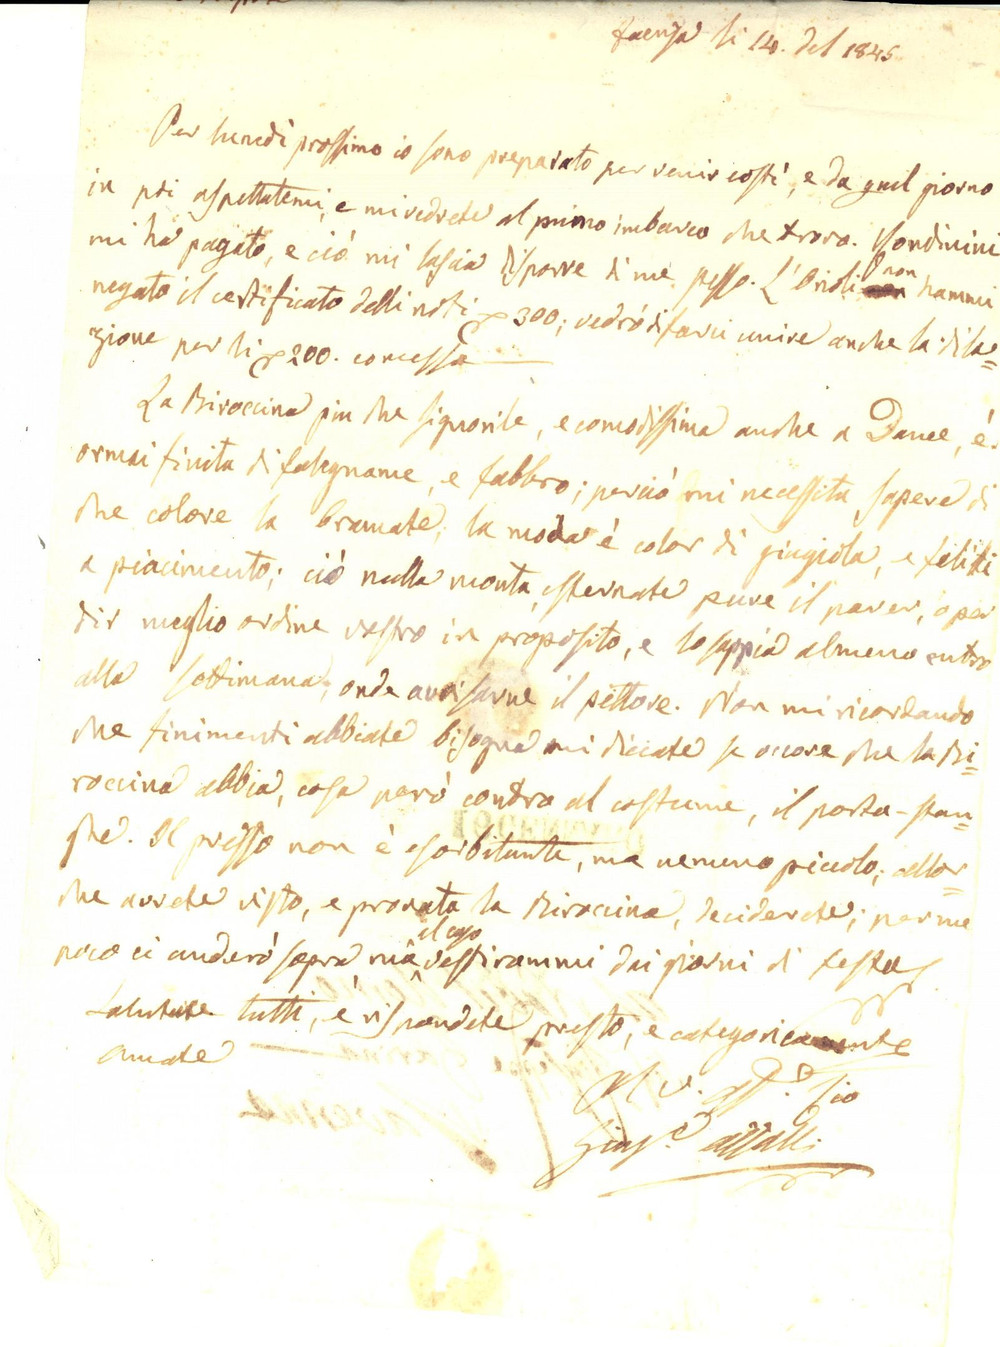 Faenza li 14. del 1845.
Per lunedì prossimo io sono preparato per venir costì, e da quel giorno
in poi aspettatemi, e mi vedrete al primo imbarco che trovo. Mondinini
mi ha pagato, e ciò mi lascia disporre di me stesso. L'Orioli non hammi
negato il certificato delli noti 300; vedrò di farci unire anche la dila=
zione per li 200. concessa
La Biroccina più che signorile, e comodissima anche a Dame, è
ormai finita di falegname, e fabbro; perciò mi necessita sapere di
che colore la bramate; la moda è color di giugiola, e filetti
a piacimento; ciò nulla monta, esternate pure il parer, o per
dir meglio ordine vostro in proposito, e lo sappia almeno entro
alla settimana, onde avvisarne il pittore. Non mi ricordando
che finimenti abbiate bisogna mi diciate se occore che la Bi=
roccina abbia, cosa però contro al costume, il porta-stan=
ghe. Il prezzo non è esorbitante, ma nemeno piccolo; allor=
che avrete visto, e provata la Biroccina, deciderete; per me
poco ci anderò sopra ma il caso vestirammi dai giorni di festa
Salutate tutti, e rispondete presto, e categoricamente
Amate
Il v. aff. Zio
Giusp.e